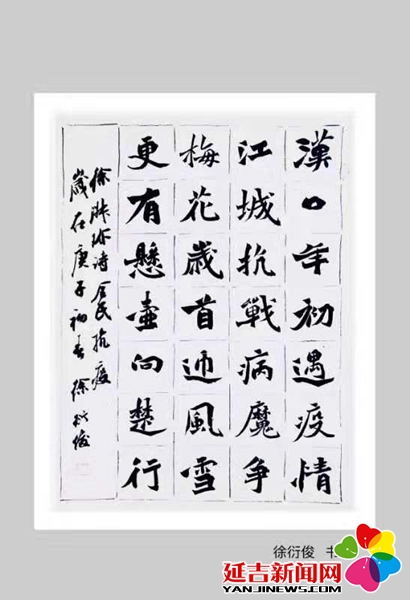 漢口年初遇疫情
江城抗戰病魔爭
梅花歲首迎風雪
更有懸壺向楚行
徐 诗 全民抗疫
歲在庚子初春 徐衍俊
徐衍俊 书
延吉新闻网
WWW.YANJINEWS.COM